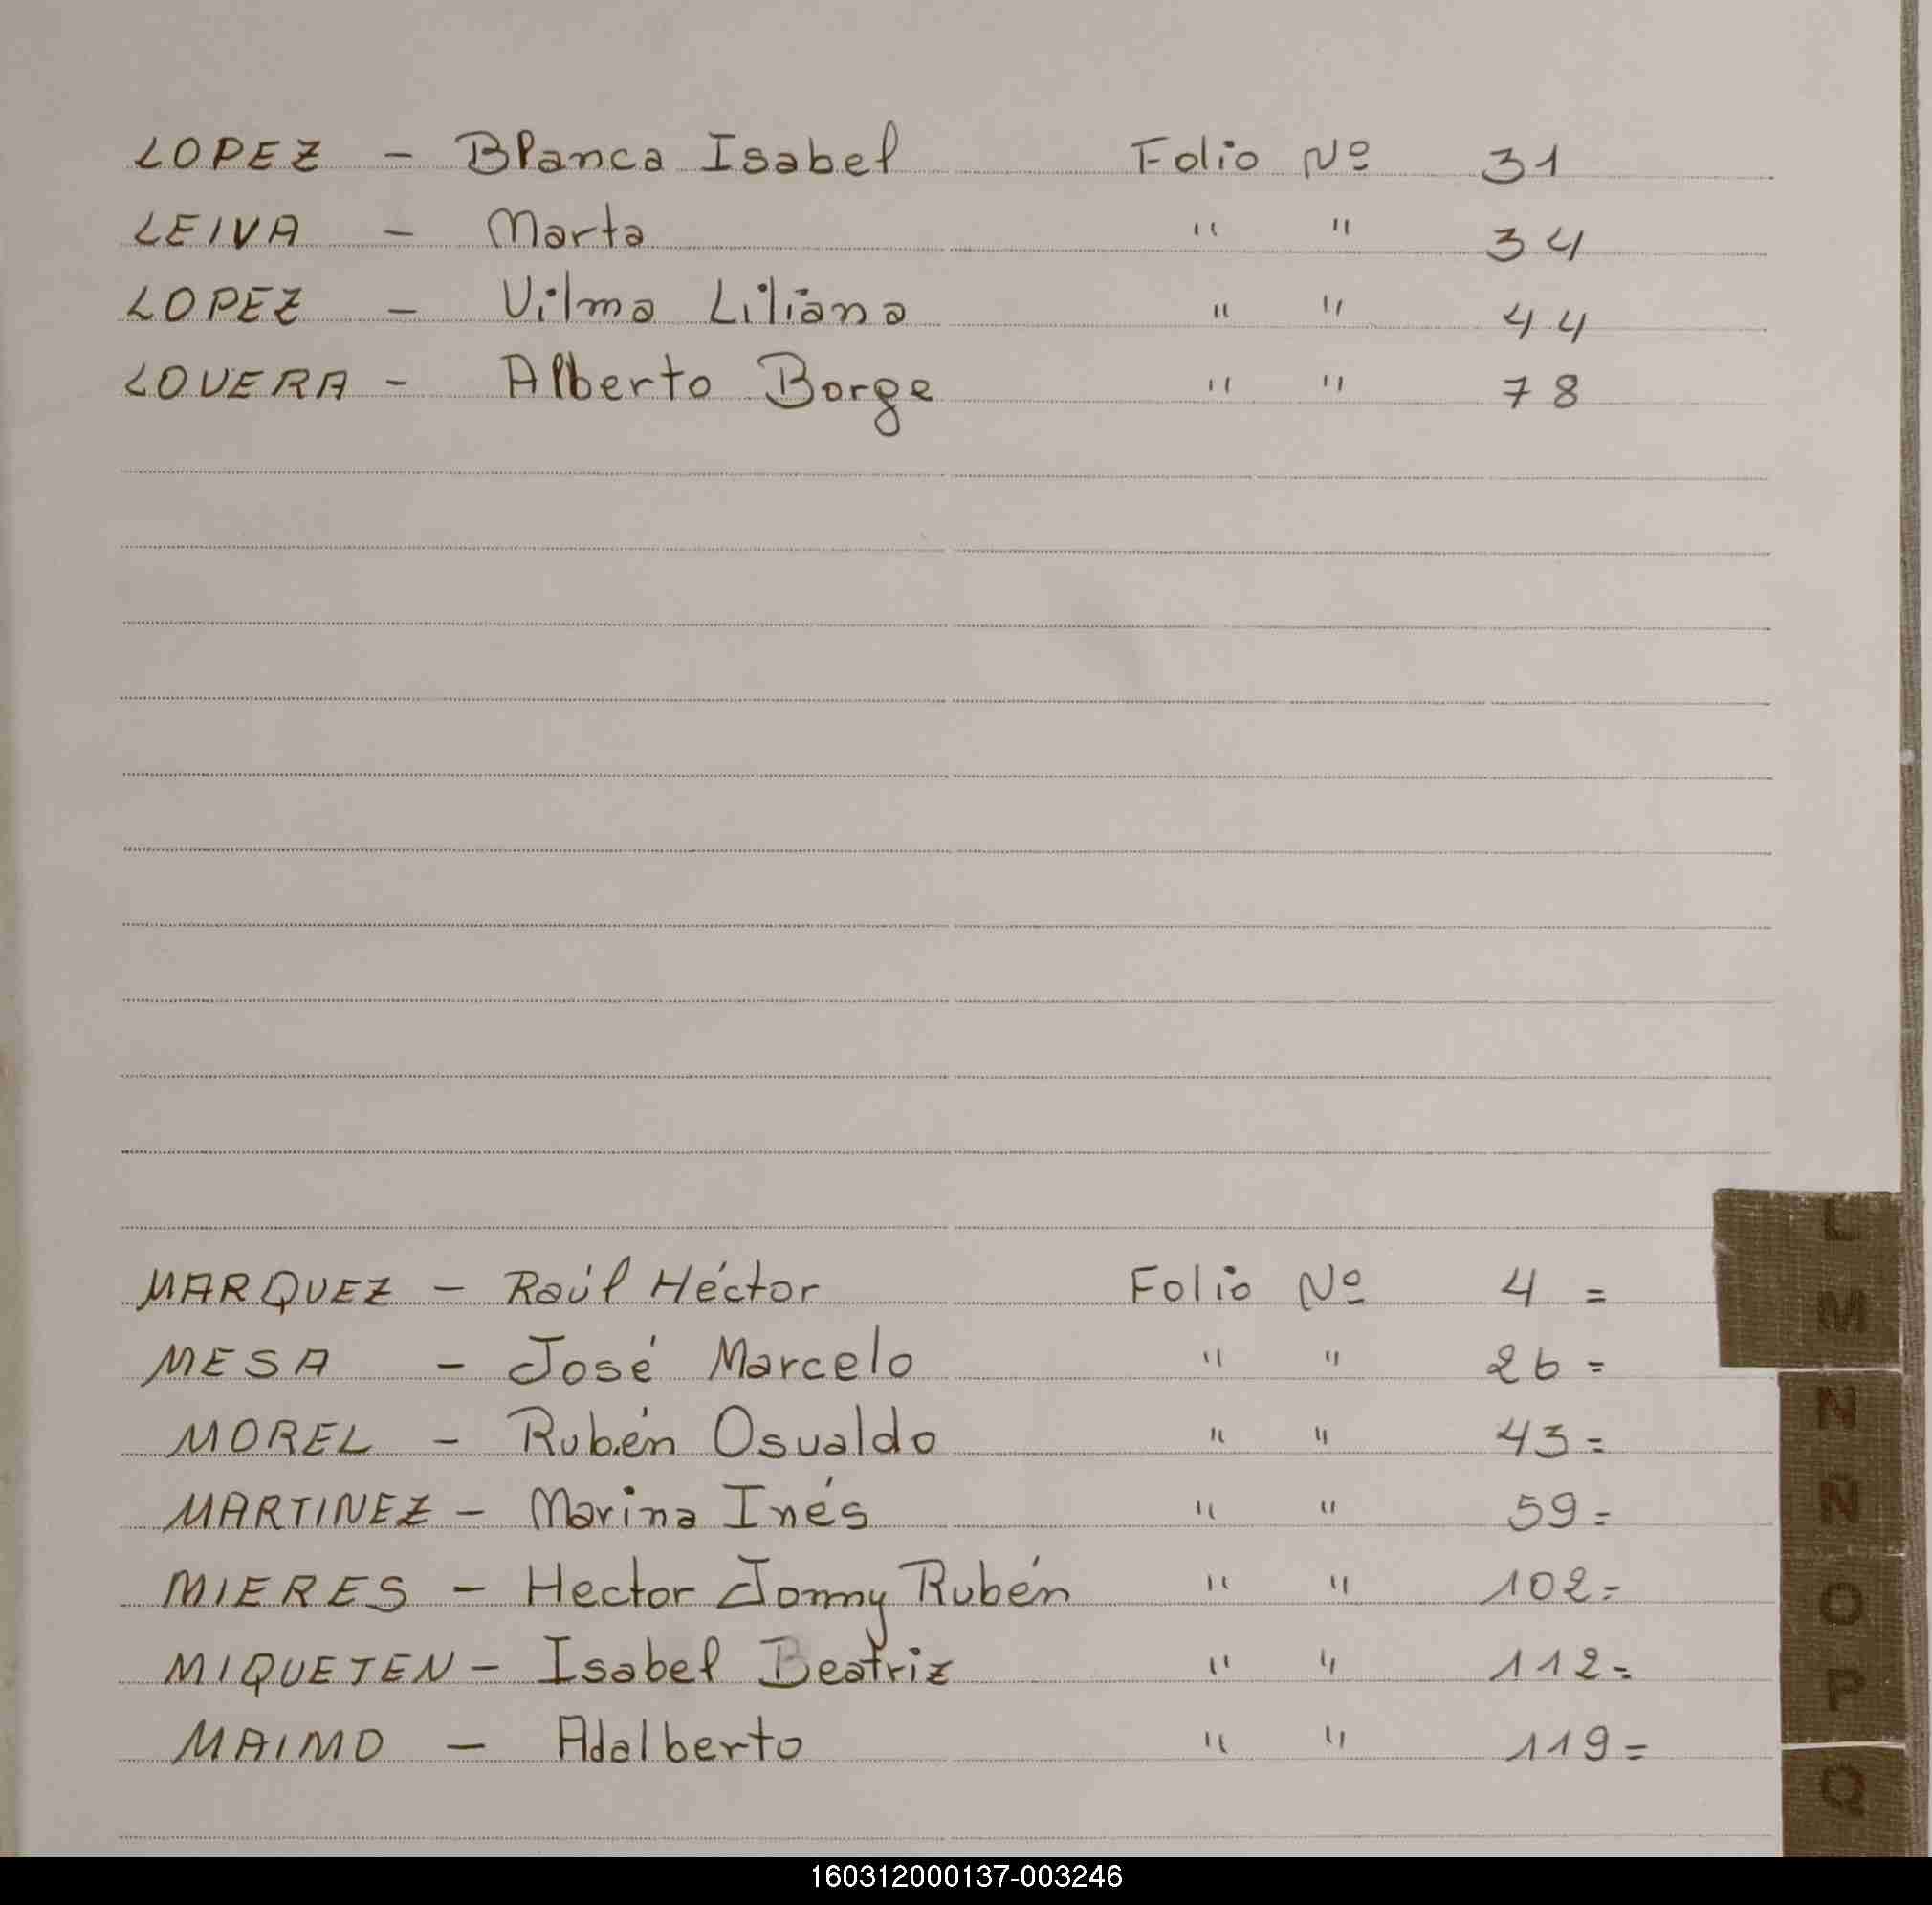 LOPEZ - Blanca Isabel Folio Nº 31
LEIVA - Marta " " 34
LOPEZ - Vilma Liliana " " 44
LOVERA - Alberto Borge " " 78
MARQUEZ - Raúl Héctor Folio Nº 4 =
MESA - José Marcelo " " 26 =
MOREL - Rubén Osvaldo " " 43 =
MARTINEZ - Marina Inés " " 59 =
MIERES - Hector Jonny Rubén " " 102 =
MIQUETEN - Isabel Beatriz " " 112 =
MAIMO - Adalberto " " 119 =
L
M
N
N
O
P
Q
160312000137-003246